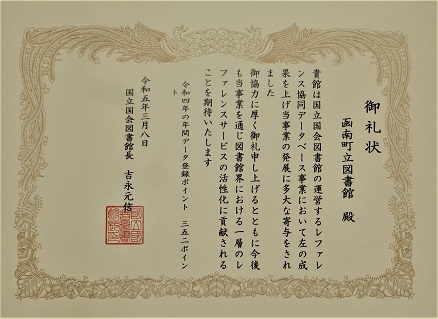 御礼状
函南町立図書館 殿
貴館は国立国会図書館の運営するレファレ
ンス協同データベース事業において左の成
果を上げ当事業の発展に多大な寄与をされ
ました
御協力に厚く御礼申し上げるとともに今後
も当事業を通じ図書館界における一層のレ
ファレンスサービスの活性化に貢献される
ことを期待いたします
令和四年の年間データ登録ポイント 三五二ポイン
ト
令和五年三月八日
国立国会図書館長 吉永元信